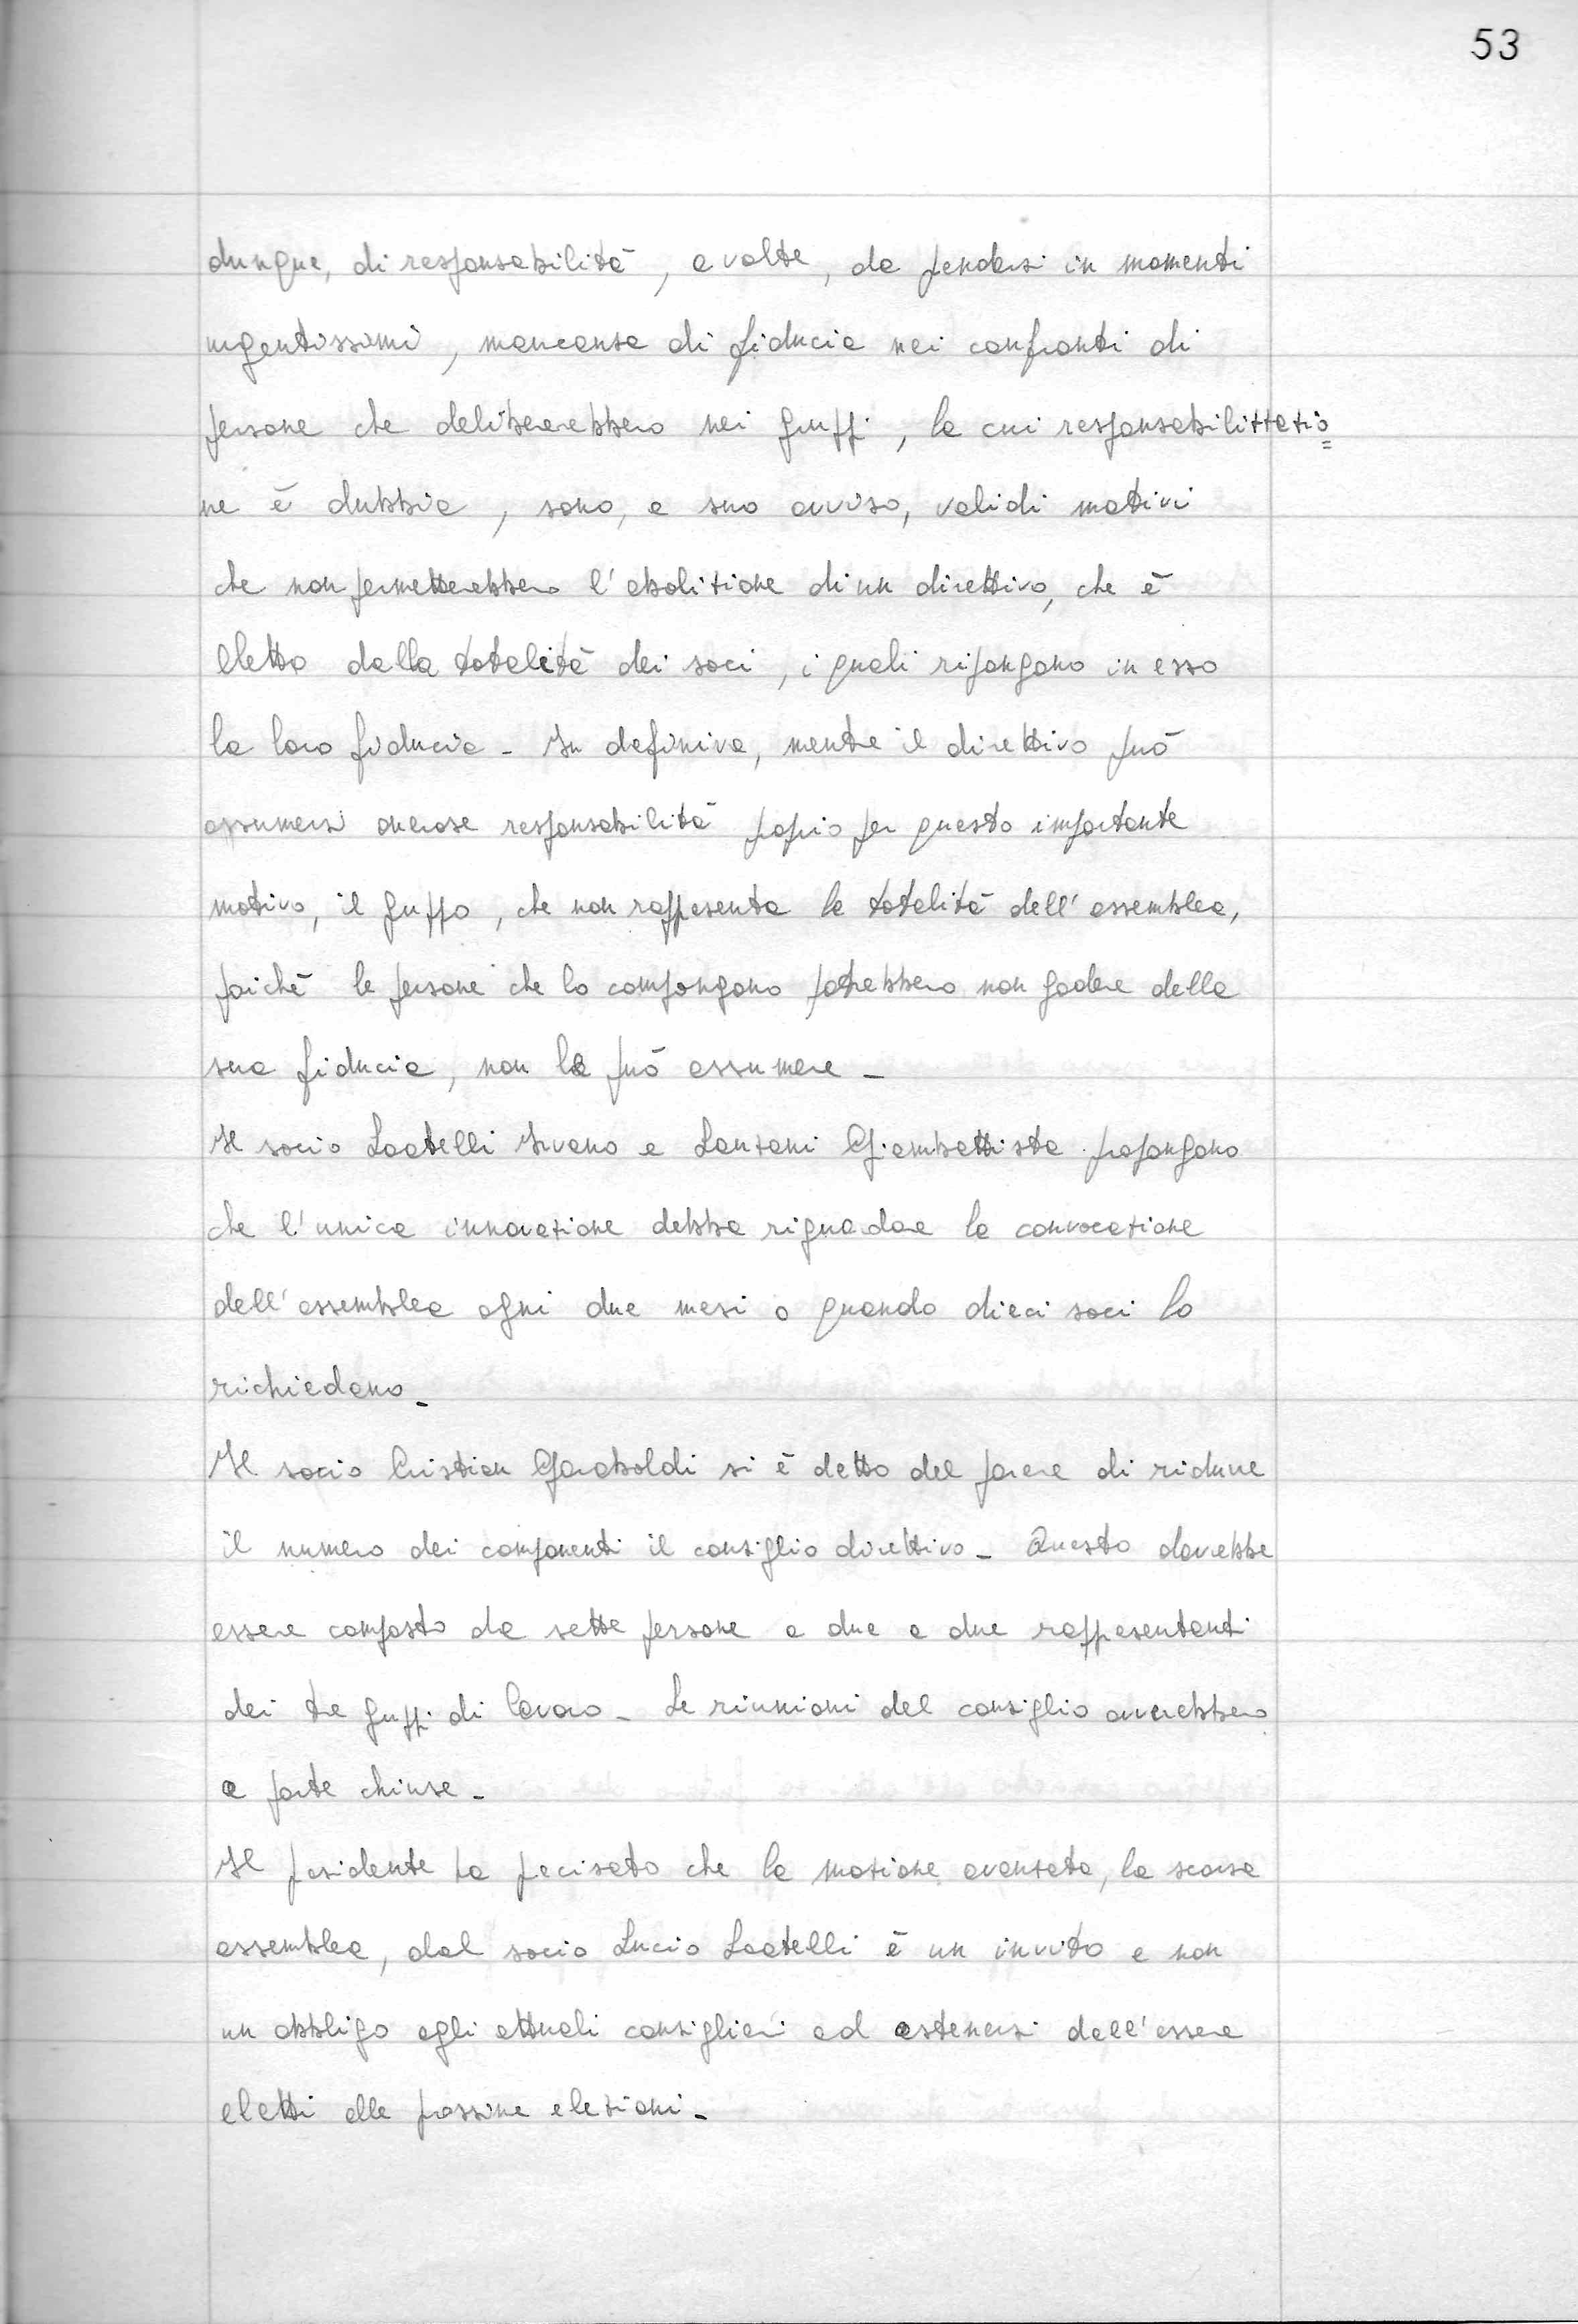 53
dunque, di responsabilità, a volte, da prendersi in momenti
urgentissimi, mancanza di fiducia nei confronti di
persone che delibererebbero nei gruppi, la cui responsabilizzazio=
ne è dubbia, sono, a suo avviso, validi motivi
che non permetterebbero l'abolizione di un direttivo, che è
eletto dalla totalità dei soci, i quali ripongono in esso
la loro fiducia - In definiva, mentre il direttivo può
assumersi onerose responsabilità proprio per questo importante
motivo, il gruppo, che non rappresenta la totalità dell'assemblea,
poichè le persone che lo compongono potrebbero non godere della
sua fiducia, non le può assumere -
Il socio Locatelli Ivano e Lanzani Giambattista propongono
che l'unica innovazione debba riguardare la convocazione
dell'assemblea ogni due mesi o quando dieci soci lo
richiedano -
Il socio Cristian Garaboldi si è detto del parere di ridurre
il numero dei componenti il consiglio direttivo - Questo dovrebbe
essere composto da sette persone e due o due rappresentanti
dei tre gruppi di lavoro - Le riunioni del consiglio avverrebbero
a porte chiuse -
Il presidente ha precisato che la mozione avanzata, la scorsa
assemblea, dal socio Lucio Locatelli è un invito e non
un obbligo agli attuali consiglieri ad astenersi dall'essere
eletti alle prossime elezioni -